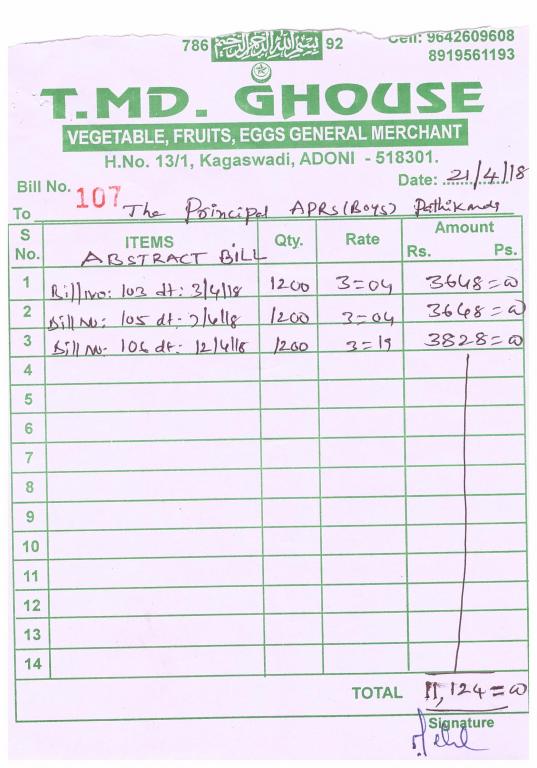 786 بسم الله الرحمن الرحيم 92
Cell: 9642609608
8919561193
T.MD. GHOUSE
VEGETABLE, FRUITS, EGGS GENERAL MERCHANT
H.No. 13/1, Kagaswadi, ADONI - 518301.
Bill No. 107 Date: 21/4/18
To The Principal APRS (Boys)
S No. ITEMS Qty. Rate Amount Rs. Ps.
ABSTRACT BILL
1 Bill No: 103 dt: 3/4/18 1200 3=04 3648=00
2 Bill No: 105 dt: 1200 3=04 3648=00
3 Bill No: 106 dt: 12/4/18 1200 3=19 3828=00
4
5
6
7
8
9
10
11
12
13
14
TOTAL 11,124=00
Signature